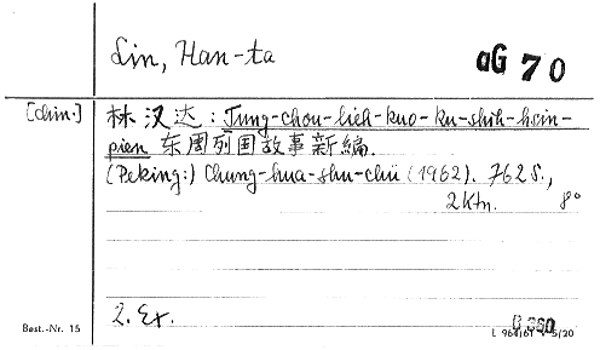 Lin, Han-ta
aG 70
[chin.]
林汉达: Tung-chou-lieh-kuo-ku-shih-hsin-
pien 东周列国故事新编.
(Peking:) Chung-hua-shu-chü (1962). 762 S.,
2 Ktn. 8°
2. Ex.
Best.-Nr. 15